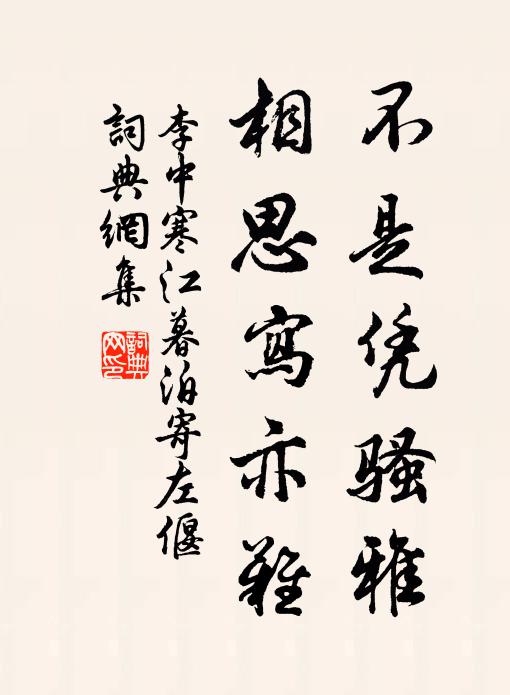 不是凭骚雅
相思寫亦難
李中寒江暮泊寄左偃
詞典網集
詞典網印